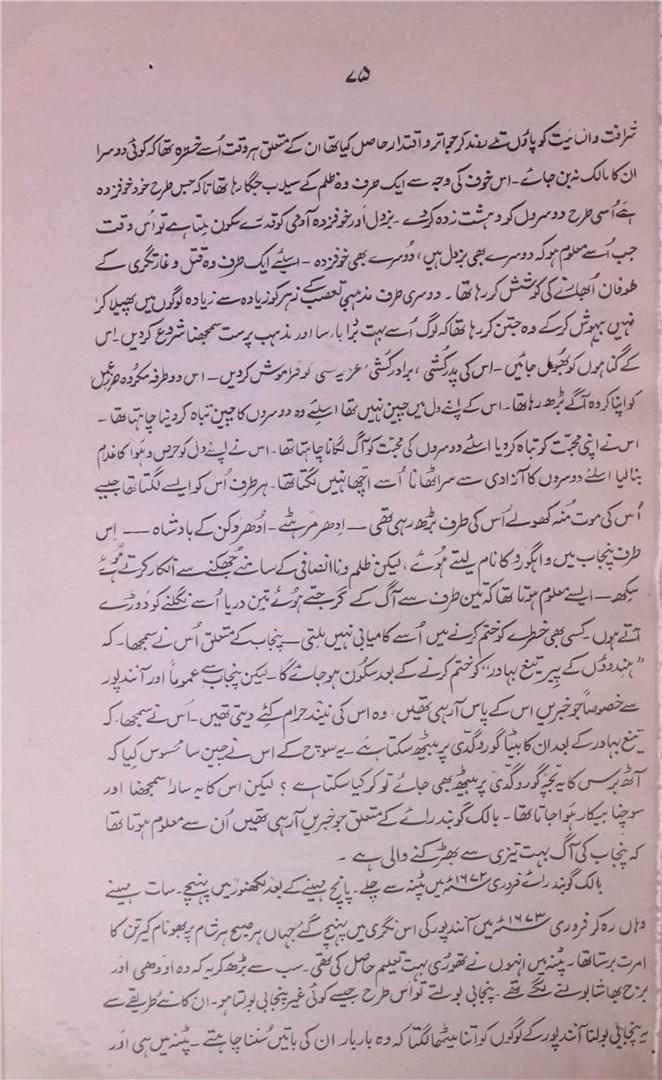 ۷۵
شرافت و انسانیت کو پاؤں تلے روند کر جو اثر و اقتدار حاصل کیا تھا ان کے متعلق ہر وقت اُسے خطرہ تھا کہ کوئی دوسرا
ان کا مالک نہ بن جائے۔ اس خوف کی وجہ سے ایک طرف وہ ظلم کے سیلاب جگا رہا تھا تاکہ جس طرح خود خوفزدہ
ہے اُسی طرح دوسروں کو دہشت زدہ کر دے۔ بزدل اور خوفزدہ آدمی کو قدرے سکون ملتا ہے تو اُس وقت
جب اُسے معلوم ہو کہ دوسرے بھی بزدل ہیں، دُوسرے بھی خوفزدہ۔ اسلئے ایک طرف وہ قتل و غارتگری کے
طوفان اُچھالنے کی کوشش کر رہا تھا۔ دوسری طرف مذہبی تعصب کے زہر کو زیادہ سے زیادہ لوگوں میں پھیلا کر
نہیں بیہوش کر کے وہ جتن کر رہا تھا کہ لوگ اُسے بہت بڑا پارسا اور مذہب پرست سمجھنا شروع کر دیں۔ اس
کے گناہوں کو بھُول جائیں۔ اس کی پدرکُشی، برادر کُشی، کو فراموش کر دیں۔ اس دو طرفہ مکروہ طرزِ عمل
کو اپنا کر وہ آگے بڑھ رہا تھا۔ اس کے اپنے دل میں چین نہیں تھا اسلئے وہ دوسروں کا چین تباہ کر دینا چاہتا تھا۔
اس نے اپنی محبّت کو تباہ کر دیا اسلئے دوسروں کی محبّت کو آگ لگانا چاہتا تھا۔ اس نے اپنے دل کو حرص و ہوا کا غلام
بنا لیا اسلئے دوسروں کا آزادی سے سر اٹھانا اُسے اچھا نہیں لگتا تھا۔ ہر طرف اُس کو ایسے لگتا تھا جیسے
اُس کی موت مُنہ کھولے اُس کی طرف بڑھ رہی تھی — اِدھر مرہٹے۔ اُدھر دکن کے بادشاہ — اِس
طرف پنجاب میں واہگورو کا نام لیتے ہوئے، لیکن ظلم و ناانصافی کے سامنے جُھکنے سے انکار کرتے ہوئے
سِکھ۔ ایسے معلوم ہوتا تھا کہ تین طرف سے آگ کے گرجتے ہوئے تین دریا اُسے نگلنے کو دوڑے
آتے ہوں۔ کسی بھی خطرے کو ختم کرنے میں اُسے کامیابی نہیں ملتی۔ پنجاب کے متعلق اُس نے سمجھا۔ کہ
”ہندوؤں کے پیر تیغ بہادر“ کو ختم کرنے کے بعد سکُون ہو جائے گا۔ لیکن پنجاب سے عموماً اور آنند پور
سے خصوصاً جو خبریں اس کے پاس آ رہی تھیں، وہ اس کی نیند حرام کئے دیتی تھیں۔ اُس نے سمجھا۔ کہ
تیغ بہادر کے بعد ان کا بیٹا گوروگدّی پر بیٹھ سکتا ہے۔ یہ سوچ کے اس نے چین سا محسوس کیا کہ
آٹھ برس کا یہ بچّہ گوروگدّی پر بیٹھ بھی جائے تو کر کیا سکتا ہے؟ لیکن اس کا یہ سارا سمجھنا اور
سوچنا بیکار ہوا جاتا تھا۔ بالک گوبند رائے کے متعلق جو خبریں آ رہی تھیں اُن سے معلوم ہوتا تھا
کہ پنجاب کی آگ بہت تیزی سے بھڑکنے والی ہے۔
بالک گوبند رائے فروری ۱۶۷۲ء میں پٹنہ سے چلے۔ پانچ مہینے کے بعد لکھنور میں پہنچے۔ سات مہینے
وہاں رہ کر فروری ۱۶۷۳ء میں آنند پور کی اس نگری میں پہنچ گئے جہاں ہر صبح ہر شام پربھو نام کیرتن کا
امرت برستا تھا۔ پٹنہ میں انہوں نے تھوڑی بہت تعلیم حاصل کی تھی۔ سب سے بڑھ کر یہ کہ وہ اودھی اور
برج بھاشا بولنے لگے تھے۔ پنجابی بولتے تو اس طرح جیسے کوئی غیر پنجابی بولتا ہو۔ ان کا نئے طریقے سے
یہ پنجابی بولنا آنند پور کے لوگوں کو اتنا میٹھا لگتا کہ وہ بار بار ان کی باتیں سُننا چاہتے۔ پٹنہ میں ہی اور